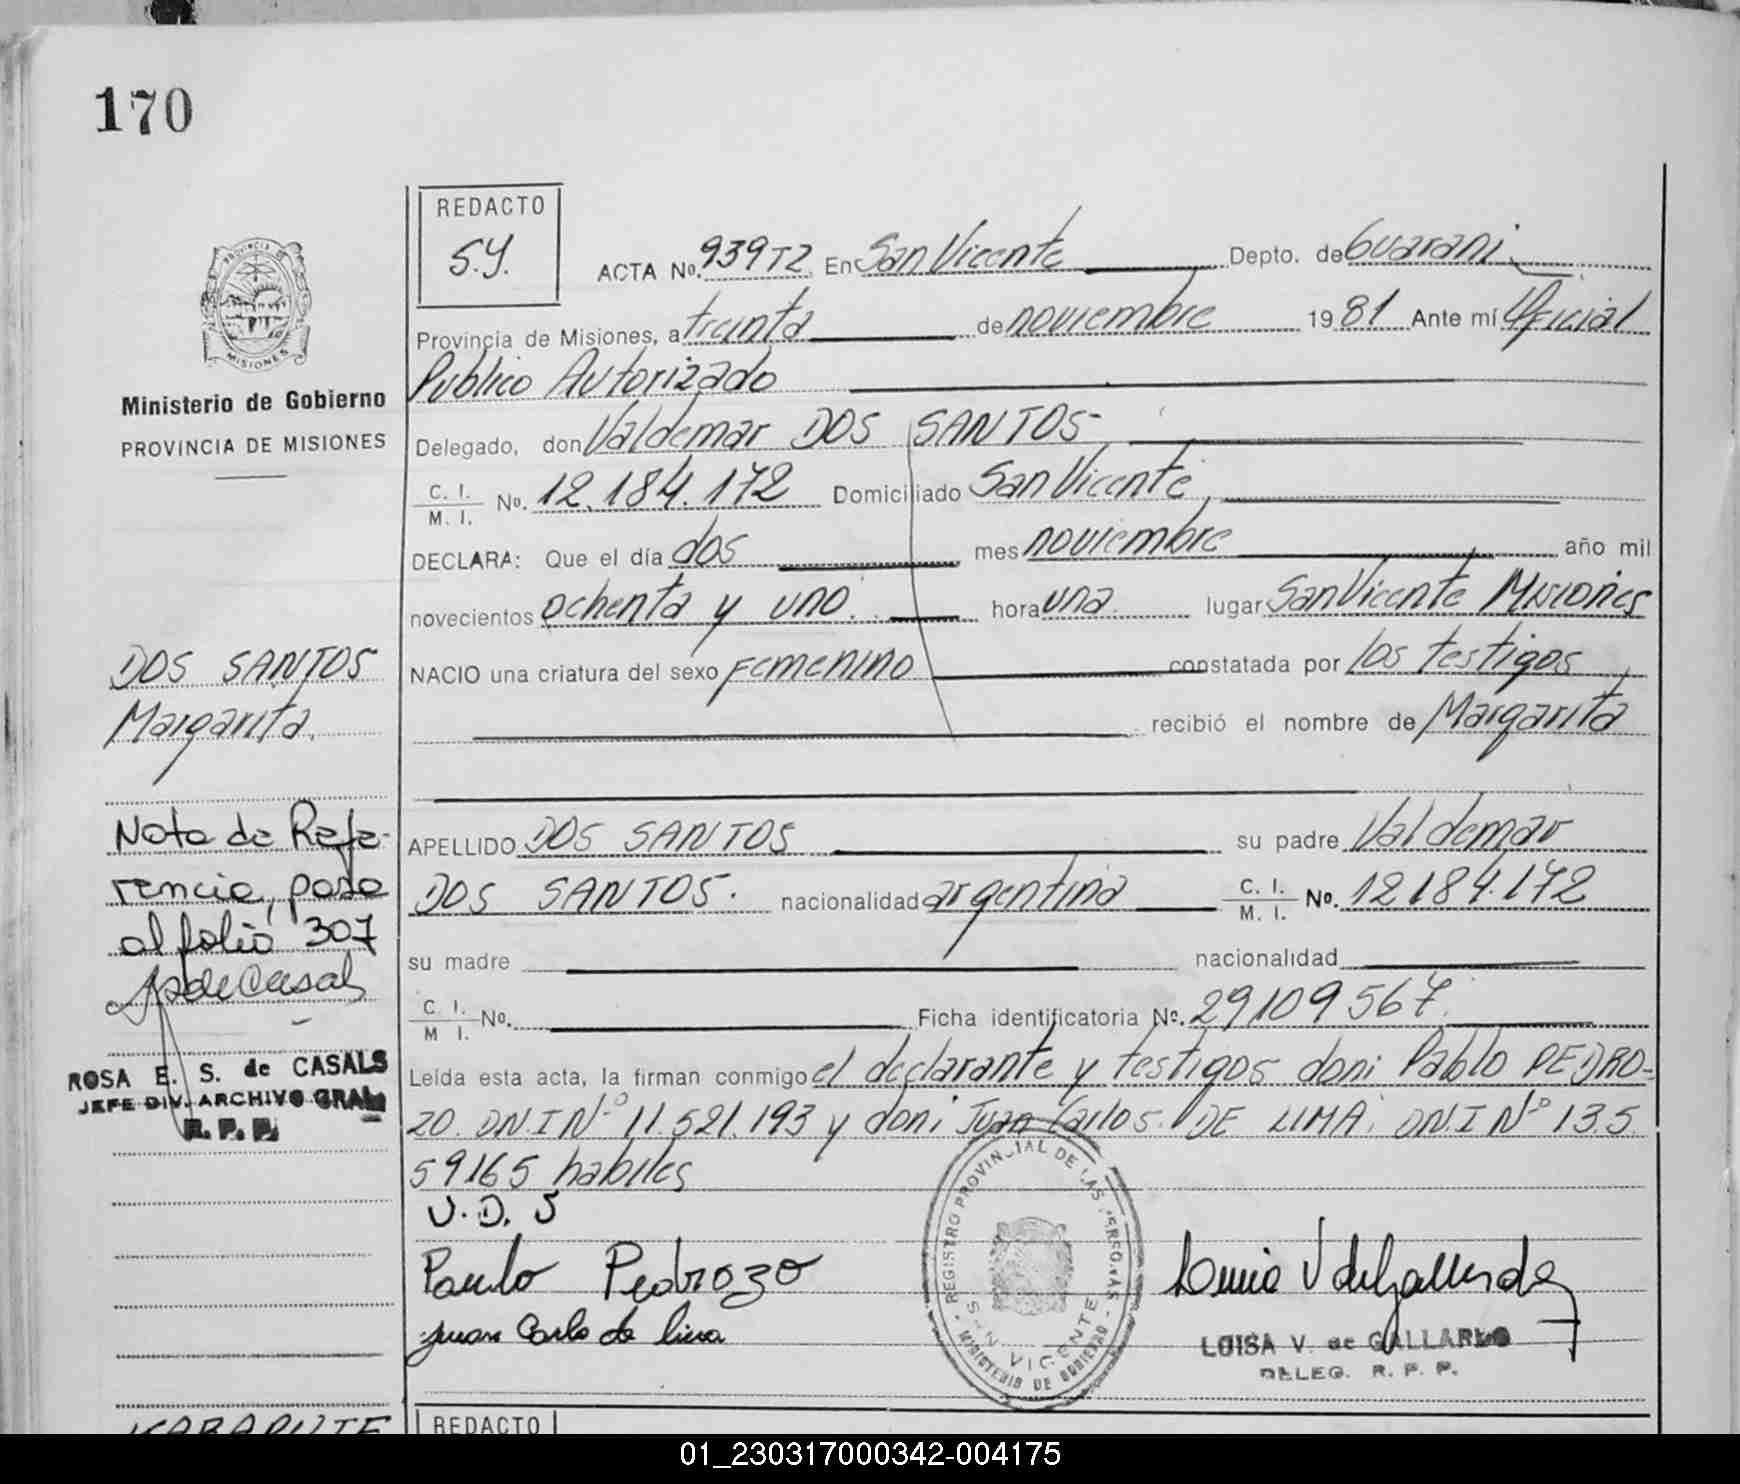 170
REDACTO
S.Y.
ACTA No. 939T2. En San Vicente Depto. de Guarani
Provincia de Misiones, a treinta de noviembre 1981 Ante mí Oficial
Publico Autorizado
Delegado, don Valdemar DOS SANTOS
C. I. M. I. No. 12.184.172 Domiciliado San Vicente
DECLARA: Que el día dos mes noviembre año mil
novecientos ochenta y uno. hora una. lugar San Vicente Misiones
NACIO una criatura del sexo Femenino constatada por los testigos
recibió el nombre de Margarita
APELLIDO DOS SANTOS su padre Valdemar
DOS SANTOS. nacionalidad argentina C. I. M. I. No. 12184.172
su madre nacionalidad
C. I. M I. No. Ficha identificatoria No. 29109567.
Leída esta acta, la firman conmigo el declarante y testigos doni Pablo PEDRO-
ZO. DN.I Nº 11.521.193 y doni Juan Carlos. DE LIMA. DN.I Nº 13.5
59165 habiles
V.D.S
Paulo Pedrozo
Juan Carlo de lima
REGISTRO PROVINCIAL DE LAS PERSONAS
SAN VICENTE
MINISTERIO DE GOBIERNO
LUISA V. de GALLARDO
DELEG. R. P. P.
PROVINCIA DE
MISIONES
Ministerio de Gobierno
PROVINCIA DE MISIONES
DOS SANTOS
Margarita.
Nota de Refe-
rencia, pasa
al folio 307
ROSA E. S. de CASALS
JEFE DIV. ARCHIVO GRAL
R. P. P.
REDACTO
01_230317000342-004175